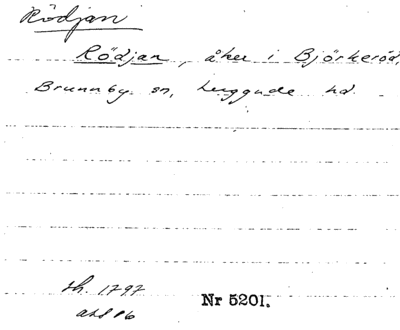 Rödjan
Rödjan, åker i Björkeröd,
Brunnby sn, Luggude hd.
sh. 1797
akt 16
Nr 5201.